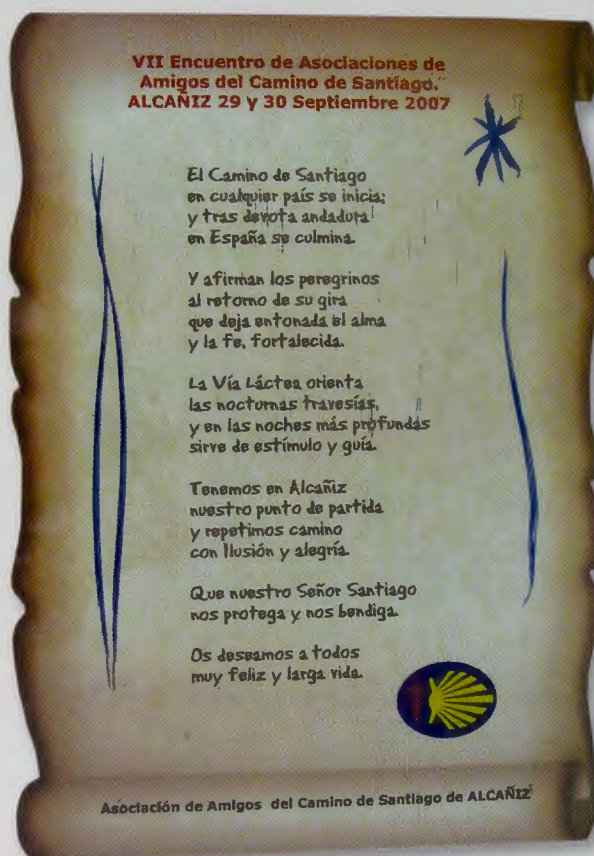 VII Encuentro de Asociaciones de
Amigos del Camino de Santiago.
ALCAÑIZ 29 y 30 Septiembre 2007
El Camino de Santiago
en cualquier país se inicia;
y tras devota andadura
en España se culmina.
Y afirman los peregrinos
al retorno de su gira
que deja entonada el alma
y la fe, fortalecida.
La Vía Láctea orienta
las nocturnas travesías,
y en las noches más profundas
sirve de estímulo y guía.
Tenemos en Alcañiz
nuestro punto de partida
y repetimos camino
con Ilusión y alegría.
Que nuestro Señor Santiago
nos protega y nos bendiga.
Os deseamos a todos
muy feliz y larga vida.
Asociación de Amigos del Camino de Santiago de ALCAÑIZ